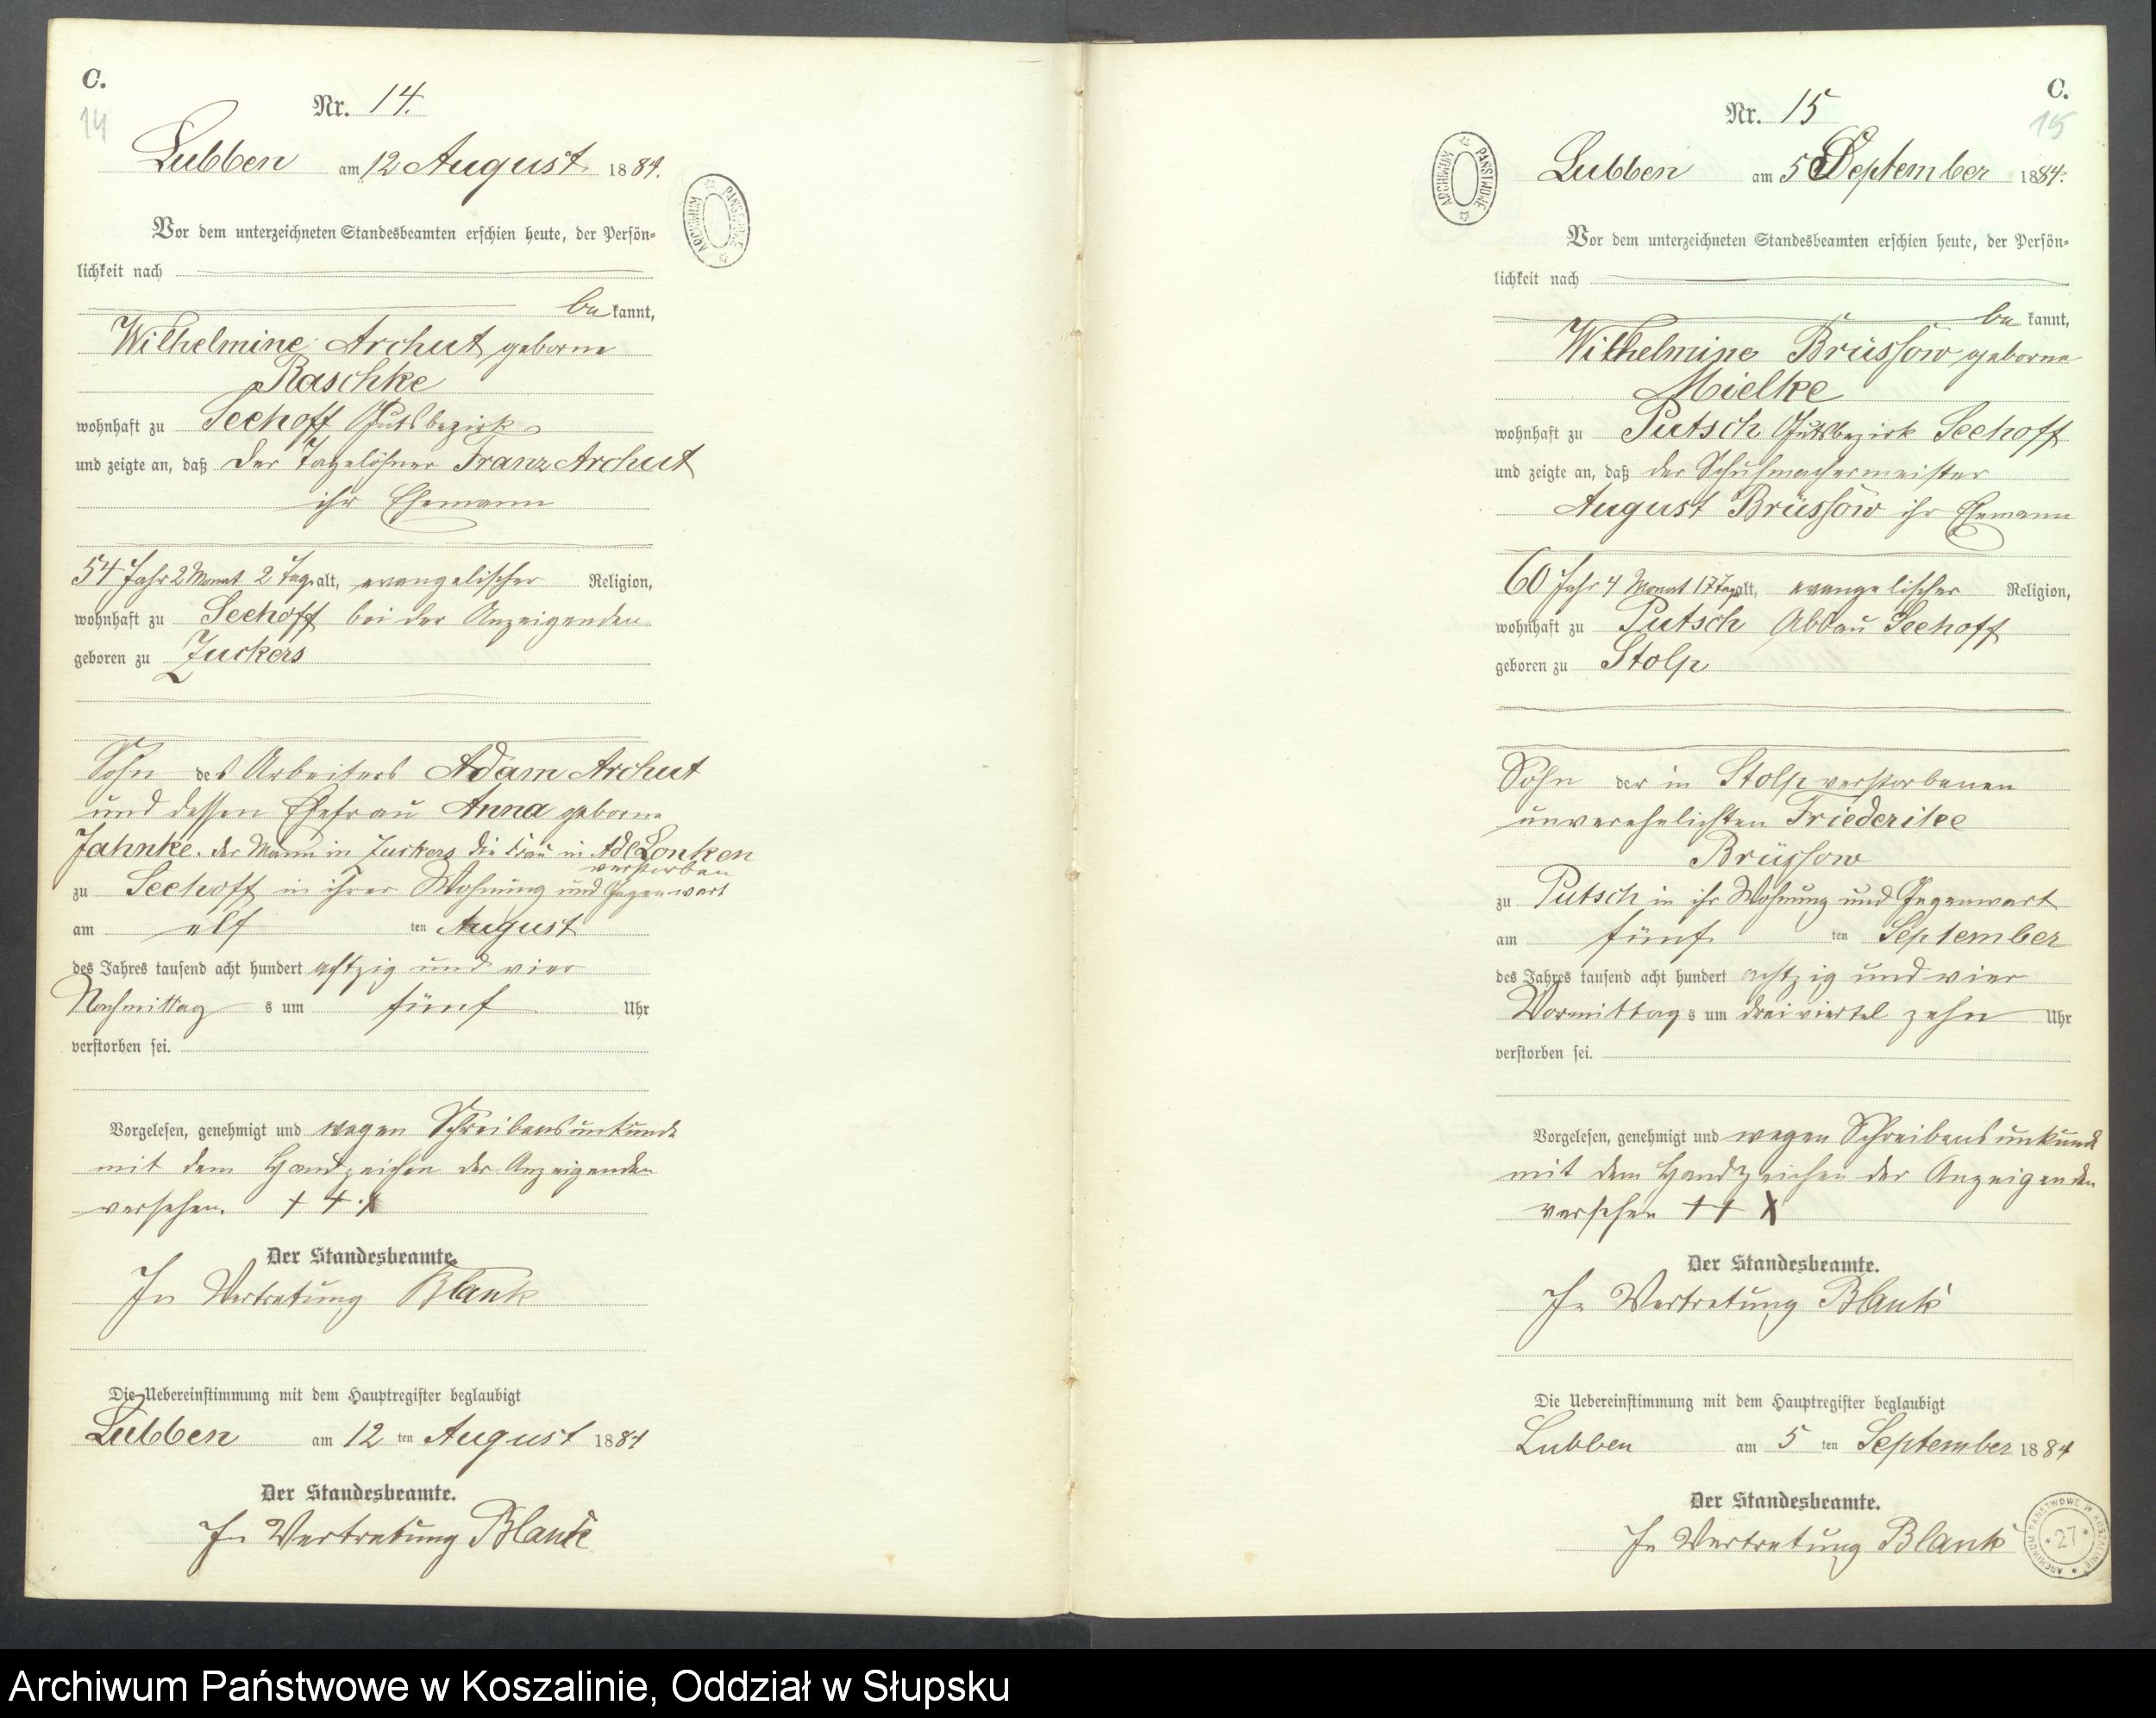 C.
14
Nr. 14.
Lubben am 12 August 1884.
ARCHIWUM PAŃSTWOWE
Vor dem unterzeichneten Standesbeamten erschien heute, der Persön-
lichkeit nach
bekannt,
Wilhelmine Archut geborne
Raschke
wohnhaft zu Seehoff Gutsbezirk
und zeigte an, daß der Tagelöhner Franz Archut
ihr Ehemann
54 Jahr 2 Monat 2 Tage alt, evangelischer Religion,
wohnhaft zu Seehoff bei der Anzeigenden
geboren zu Zuckers
Sohn des Arbeiters Adam Archut
und dessen Ehefrau Anna geborne
Jahnke. der Mann in Zuckers die Frau in Adl Lonken
verstorben
zu Seehoff in ihrer Wohnung und Gegenwart
am elf ten August
des Jahres tausend acht hundert achtzig und vier
Nachmittag s um fünf Uhr
verstorben sei.
Vorgelesen, genehmigt und wegen Schreibensunkunde
mit dem Handzeichen der Anzeigenden
versehen. + + +
Der Standesbeamte.
In Vertretung Blank
Die Uebereinstimmung mit dem Hauptregister beglaubigt
Lubben am 12 ten August 1884
Der Standesbeamte.
In Vertretung Blank
C.
15
Nr. 15
Lubben am 5 September 1884.
ARCHIWUM PAŃSTWOWE
Vor dem unterzeichneten Standesbeamten erschien heute, der Persön-
lichkeit nach
bekannt,
Wilhelmine Brüssow geborne
Mielke
wohnhaft zu Putsch Gutsbezirk Seehoff
und zeigte an, daß der Schuhmachermeister
August Brüssow ihr Ehemann
60 Jahr 4 Monat 17 Tage alt, evangelischer Religion,
wohnhaft zu Putsch Abbau Seehoff
geboren zu Stolp
Sohn der in Stolp verstorbenen
unverehelichten Friederike
Brüssow
zu Putsch in ihr Wohnung und Gegenwart
am fünf ten September
des Jahres tausend acht hundert achtzig und vier
Vormittag s um dreiviertel zehn Uhr
verstorben sei.
Vorgelesen, genehmigt und wegen Schreibensunkunde
mit dem Handzeichen der Anzeigenden
versehen + + X
Der Standesbeamte.
In Vertretung Blank
Die Uebereinstimmung mit dem Hauptregister beglaubigt
Lubben am 5 ten September 1884
Der Standesbeamte.
In Vertretung Blank
ARCHIWUM PAŃSTWOWE W KOSZALINIE
* 27 *
Archiwum Państwowe w Koszalinie, Oddział w Słupsku